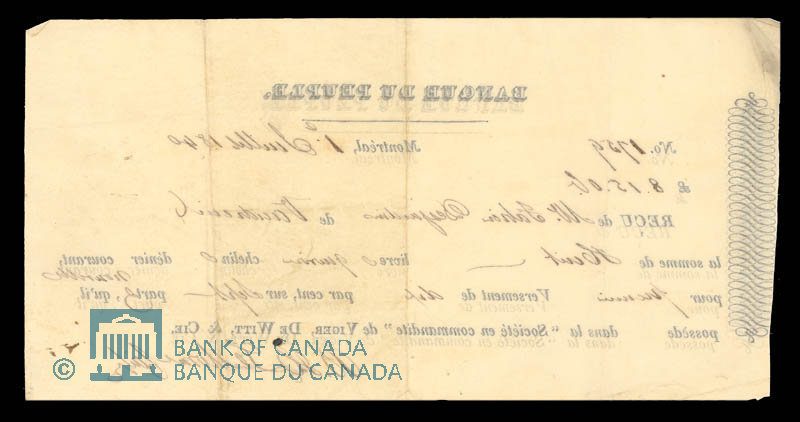 BANQUE DU PEUPLE.
No. 1759 Montréal, 1er Juillet 1840
£ 8.15.0
REÇU de Mr. Desjardins de Vaudreuil
la somme de Huit livres quinze chelins dénier courant,
pour Versement de par cent, sur Sept parts, qu'il
nouvelle
possède dans la “ Société en commandite ” de VIGER, DE WITT, & CIE.
BANK OF CANADA
© BANQUE DU CANADA